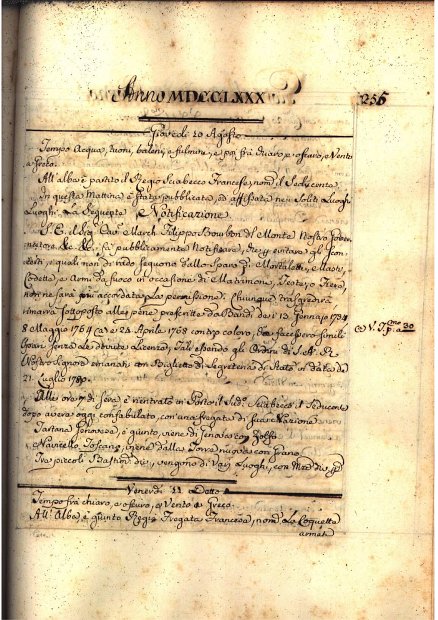 Anno MDCCLXXX
256
Giovedì 10 Agosto
Tempo Acqua, tuoni, baleni, e fulmini, e poi frà chiaro, e oscuro, e Vento
a Greco.
All'alba è partito il Regio Sciabecco Francese, nom. il Seducente
In questa Mattina è stata pubblicata, ed affissata nei Soliti Luoghi
Luoghi. La seguente Notificazione
S. E. il Sig. Cav. March. Filippo Bourbon del Monte Nostro Gover-
natore &c. &c. fà pubblicamente Notificare, che per evitare gli scon-
certi, i quali non di rado seguono dallo Sparo di Mortaletti, e Masti,
Codette, e Armi da fuoco in occasione di Matrimoni, Feste, o Fiere,
non ne sarà più accordata la permissione. Chiunque trasgredirà
rimarrà sottoposto alle pene prescritte da Bandi de i 13 Gennaio 1734
8 Maggio 1764 e 23 Aprile 1768 contro coloro, che facessero simili
Spari senza le dovute Licenze, Tali essendo gli Ordini di S. A. R.
Nostro Signore emanati con Biglietto di Segreteria di Stato in data de
21 Luglio 1780.
V. T. p. a 20
Alle ore 7 di sera è rientrato in Porto il Sud. Sciabecco il Seducente
dopo avere oggi confabulato, con una fregata di sua Nazione
Tartana Genovese, è giunto, viene di Genova con Zolfo
Navicello Toscano, viene dalla Torre nuova con Grano
Tre piccoli Bastim. che, vengono di Varj Luoghi, con
Venerdì 11 Detto
Tempo frà chiaro, e oscuro, e Vento a Greco
All'Alba è giunta Regia Fregata Francese, nom. la Coquette
armat.